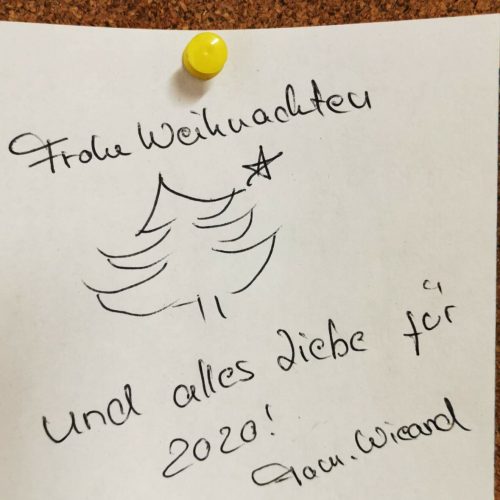 Frohe Weihnachten
und alles Liebe für
2020!
Fam. Wieard